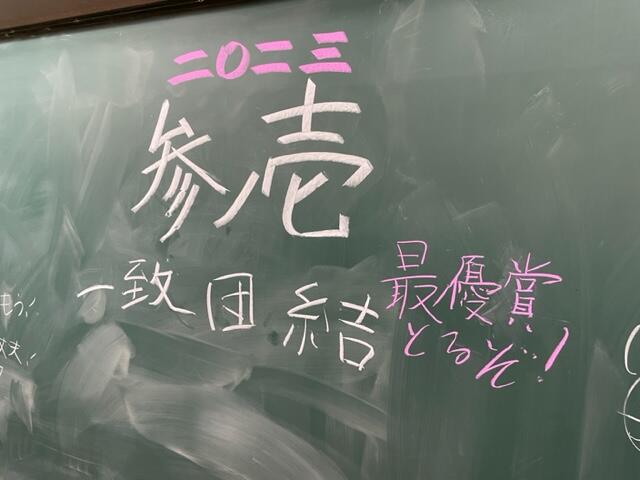 二〇二三
参ノ壱
一致団結
最優賞
とるぞ!
もう!
丈夫!